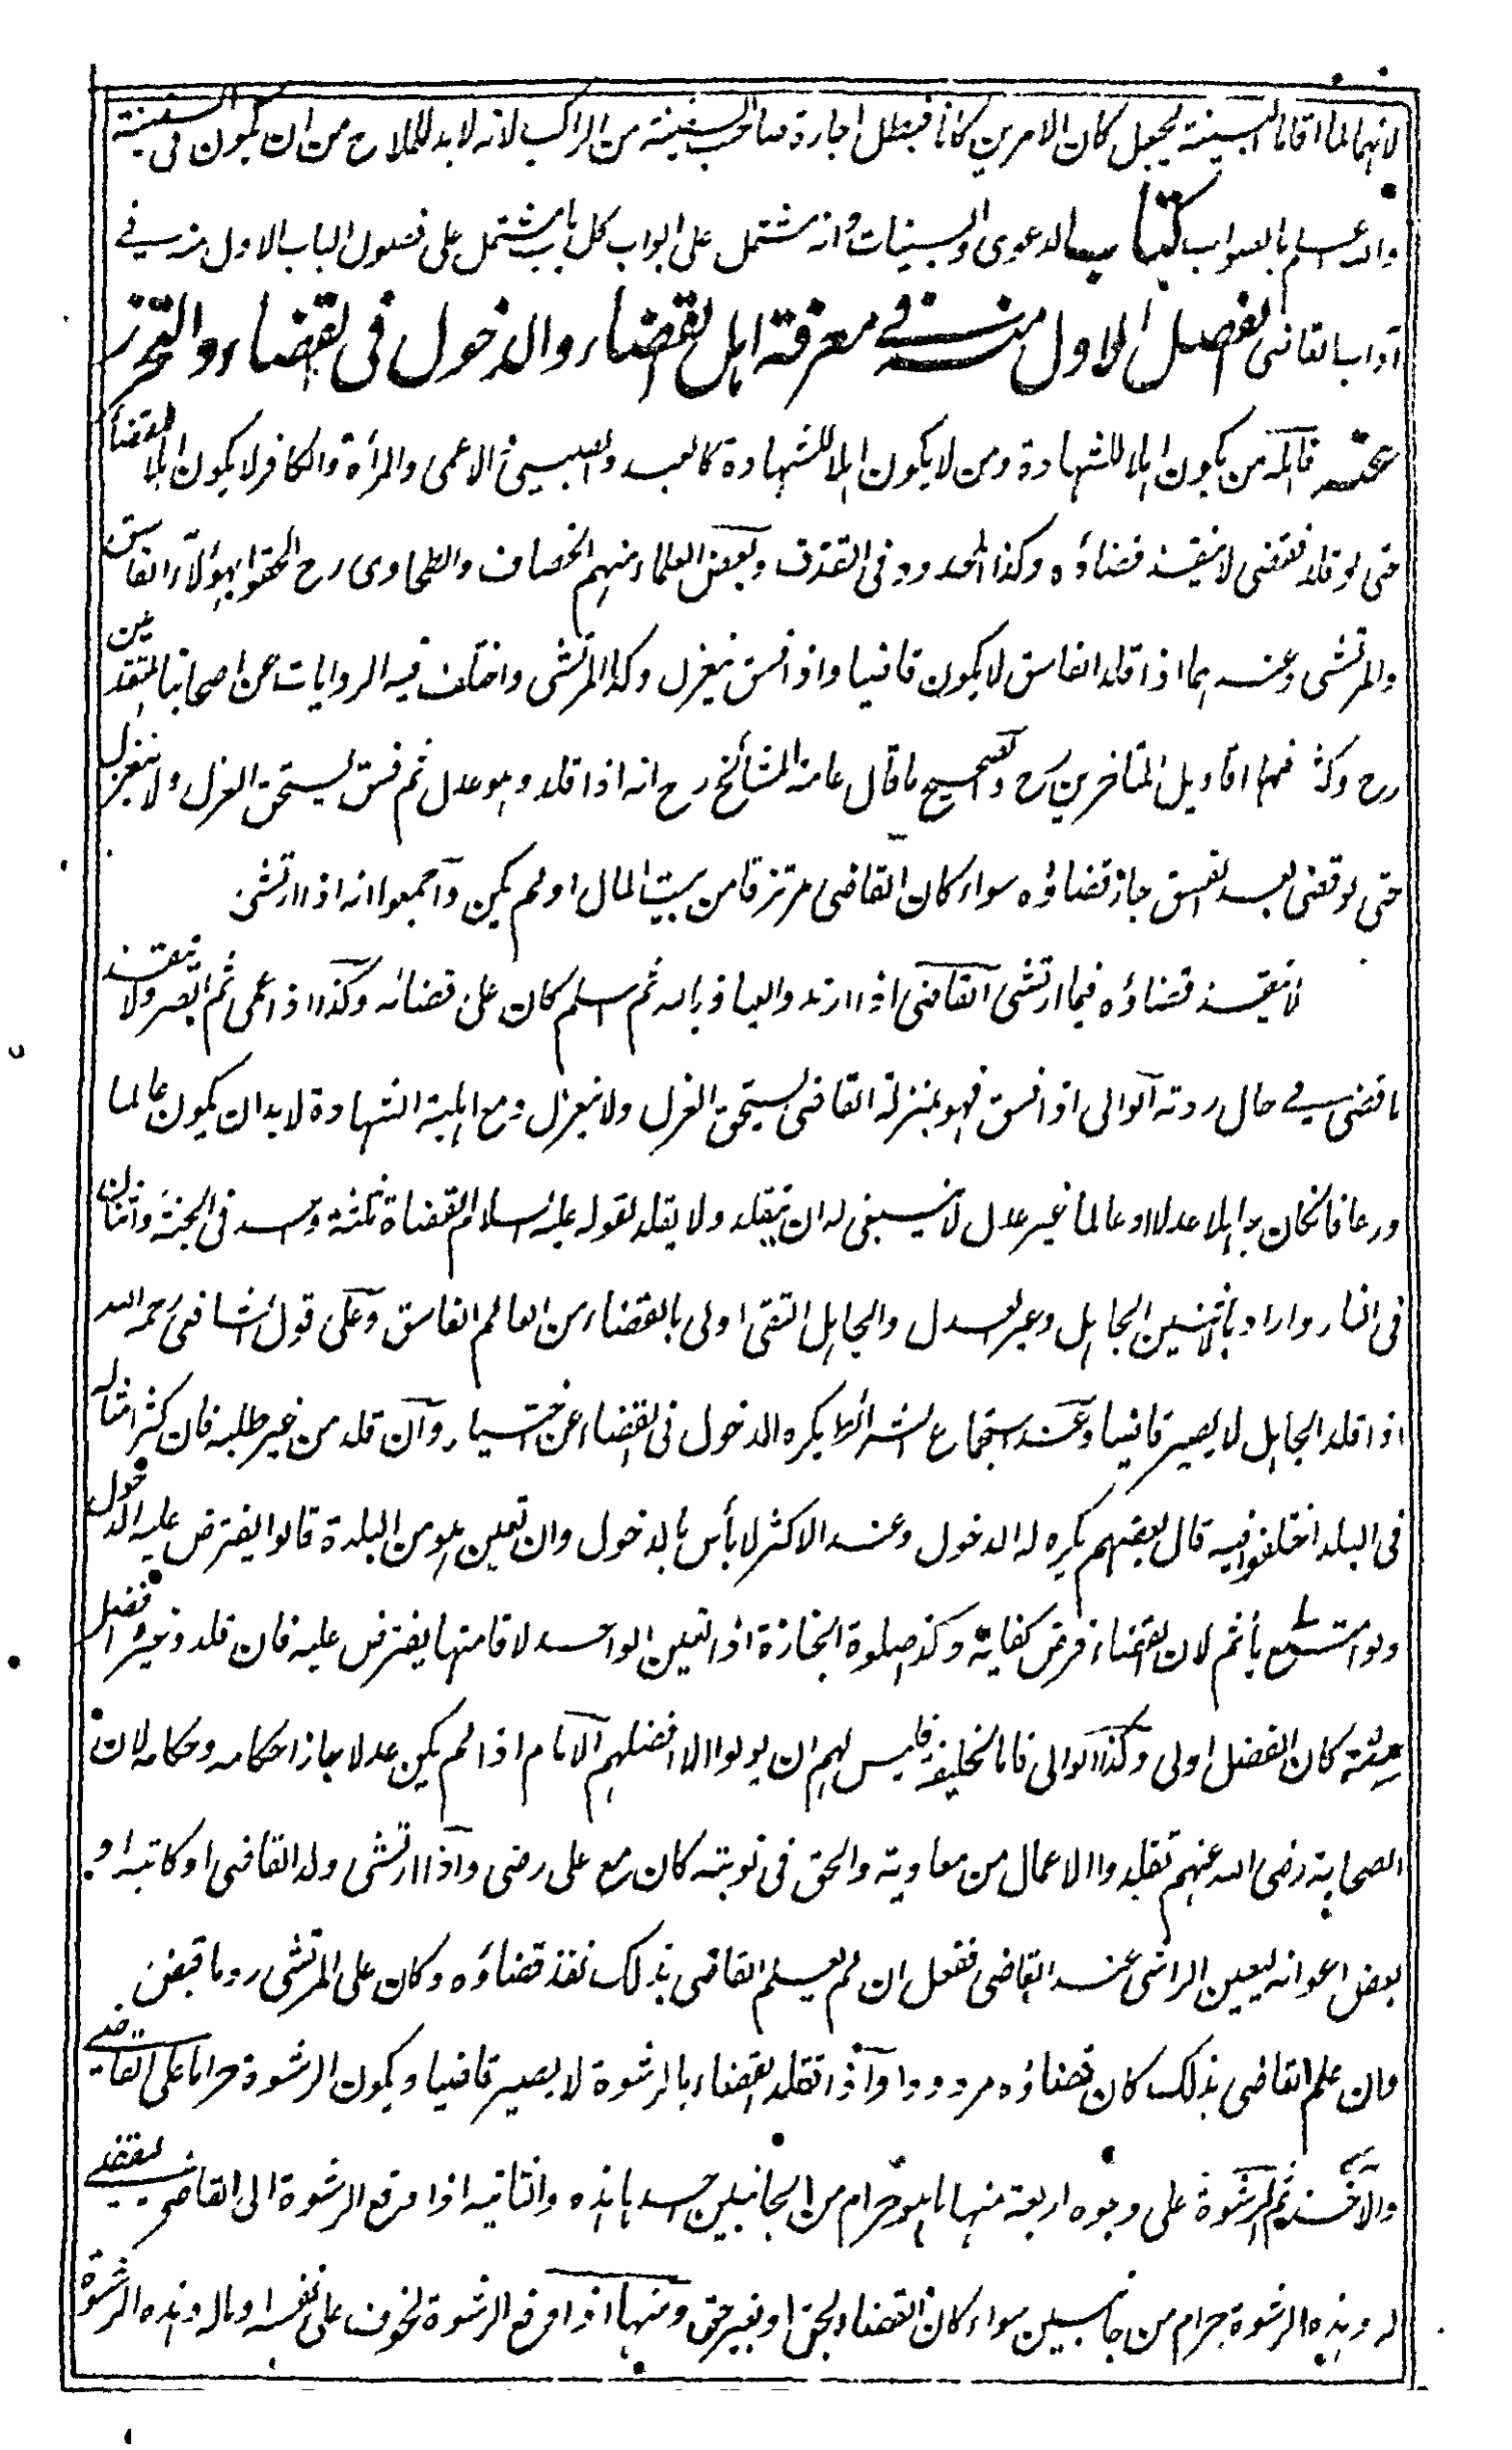 لانهما لما اقاما البينة يجعل كان الامرين كانا فيبطل اجارة صاحب السفينة من الراكب لانه لا بد للملاح من ان يكون فى السفينة
والله اعلم بالصواب كتاب الدعوى والبينات وانه مشتمل على ابواب كل باب يشتمل على فصول الباب الاول منه في
آداب القاضى الفصل الاول منه في معرفة اهل القضاء والدخول فى القضاء والتحرز
عنه قال من يكون اهلا للشهادة ومن لا يكون اهلا للشهادة كالعبد والصبى والاعمى والمرأة والكافر لا يكون اهلا للقضاء
حتى لو قلد فقضى لا ينفذ قضاؤه وكذا المحدود فى القذف وبعض العلماء منهم الخصاف والطحاوى رح الحقوا بهؤلاء الفاسق
والمرتشى وعندهما اذا قلد الفاسق لا يكون قاضيا واذا فسق ينعزل وكذا المرتشى واختلف فيه الروايات عن اصحابنا المتقدمين
رح وكذا فيها اقاويل المتاخرين رح والصحيح ما قال عامة المشائخ رح انه اذا قلد وهو عدل ثم فسق يستحق العزل ولا ينعزل
حتى لو قضى بعد الفسق جاز قضاؤه سواء كان القاضى مرتزقا من بيت المال او لم يكن وأجمعوا انه اذا ارتشى
لا ينفذ قضاؤه فيما ارتشى القاضى اذا ارتد والعياذ بالله ثم اسلم كان على قضائه وكذا اذا عمى ثم ابصر ولا ينفذ
ما قضى في حال ردته الوالى اذا فسق فهو بمنزلة القاضى يستحق العزل ولا ينعزل ومع اهلية الشهادة لا بد ان يكون عالما
ورعا فان كان جاهلا عدلا او عالما غير عدل لا ينبغى له ان يتقلد ولا يقلد لقوله عليه السلام القضاة ثلثة واحد فى الجنة واثنان
فى النار واراد بالاثنين الجاهل وغير العدل والجاهل التقى اولى بالقضاء من العالم الفاسق وعلى قول الشافعى رحمه الله
اذا قلد الجاهل لا يصير قاضيا وعند استجماع الشرائط يكره الدخول فى القضاء عن اختيار وان قلد من غير طلبه فان كثر امثاله
فى البلد اختلفوا فيه قال بعضهم يكره له الدخول وعند الاكثر لا بأس بالدخول وان تعين هو من البلدة قالوا يفترض عليه الدخول
ولو امتنع يأثم لان القضاء فرض كفاية وكذا صلوة الجنازة اذا تعين الواحد لاقامتها يفترض عليه فان قلد وغيره افضل
منه كان الفضل اولى وكذا الوالى فاما الخليفة فليس لهم ان يولوا الا افضلهم الامام اذا لم يكن عدلا جاز احكامه وحكامه لان
الصحابة رضى الله عنهم تقلدوا الاعمال من معاوية والحق فى نوبته كان مع على رضى واذا ارتشى ولد القاضى او كاتبه او
بعض اعوانه ليعين الراشى عند القاضى ففعل ان لم يعلم القاضى بذلك نفذ قضاؤه وكان على المرتشى رد ما قبض
وان علم القاضى بذلك كان قضاؤه مردودا واذا تقلد القضاء بالرشوة لا يصير قاضيا ويكون الرشوة حراما على القاضي
والآخذ ثم الرشوة على وجوه اربعة منها ما هو حرام من الجانبين احدها هذه والثانية اذا دفع الرشوة الى القاضي ليقضي
له وهذه الرشوة حرام من جانبين سواء كان القضاء بحق او بغير حق ومنها اذا دفع الرشوة لخوف على نفسه او ماله وهذه الرشوة